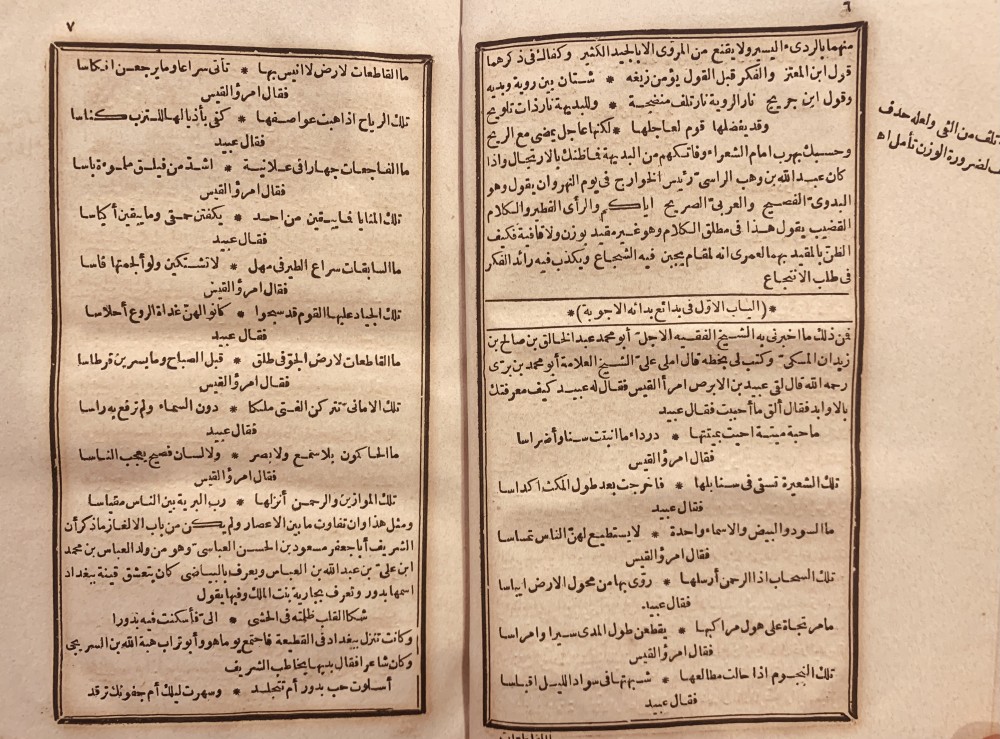 ٦
منهما بالردىء اليسير ولا يقنع من المروى الا بالجيد الكثير وكفاك فى ذكرهما
قول ابن المعتز والفكر قبل القول يؤمن زيغه * شتان بين روية وبديه
وقول ابن جريج نار الروية نار تلف منضجة * وللبديهة نار ذات تلويح
وقد يفضلها قوم لعاجلها * لكنها عاجل يمضى مع الريح
وحسبك بهرب امام الشعراء وفاتكهم من البديهة فاظنك بالارتجال واذا
كان عبد الله بن وهب الراسى رئيس الخوارج فى يوم النهروان يقول وهو
البدوى الفصيح والعربى الصريح اياكم والرأى الفطير والكلام
القضيب يقول هذا فى مطلق الكلام وهو غير مقيد بوزن ولا قافية فكيف
الظن بالمقيد بهما لعمرى انه لمقام يجبن فيه الشجاع ويكذب فيه رائد الفكر
فى طلب الانتجاع
*(الباب الاول فى بدائع بدائه الاجوبة)*
فمن ذلك ما اخبرنى به الشيخ الفقيه الاجل أبو محمد عبد الخالق بن صالح بن
زيدان المسكى وكتب لى بخطه قال املى على الشيخ العلامة أبو محمد بن برى
رحمه الله قال لقى عبيد بن الابرص امرأ القيس فقال له عبيد كيف معرفتك
بالاوابد فقال ألق ما أحببت فقال عبيد
ماحية ميتة احيت بميتتها * درداء ما انبتت سنا وأضراسا
فقال امرؤ القيس
تلك الشعيرة تسقى فى سنابلها * فاخرجت بعد طول المكث اكداسا
فقال عبيد
ما السود والبيض والاسماء واحدة * لا يستطيع لهن الناس تمساسا
فقال امرؤ القيس
تلك السحاب اذا الرحمن أرسلها * روّى بها من محول الارض ايباسا
فقال عبيد
ما مرتجاة على هول مراكبها * يقطعن طول المدى سيرا وامراسا
فقال امرؤ القيس
تلك النجوم اذا حالت مطالعها * شبهتها فى سواد الليل اقباسا
فقال عبيد
ما القاطعات
تلف من الثى ولعله حذف
لضرورة الوزن تأمل اه
٧
ما القاطعات لارض لا انيس بها * تأتى سراعا وما يرجعن انكاسا
فقال امرؤ القيس
تلك الرياح اذا هبت عواصفها * كفى بأذيالها للترب كناسا
فقال عبيد
ما الفاجعات جهارا فى علانية * اشد من فيلق مملوءة باسا
فقال امرؤ القيس
تلك المنايا فما يبقين من احد * يكفتن حمقى وما يبقين أكياسا
فقال عبيد
ما السابقات سراع الطير فى مهل * لا تشتكين ولو ألجمتها فاسا
فقال امرؤ القيس
تلك الجياد عليها القوم قد سبحوا * كانوا لهن غداة الروع أحلاسا
فقال عبيد
ما القاطعات لارض الجو فى طلق * قبل الصباح وما يسرين قرطاسا
فقال امرؤ القيس
تلك الامانى تتركن الفتى ملكا * دون السماء ولم ترفع به راسا
فقال عبيد
ما الحاكمون بلا سمع ولا بصر * ولا لسان فصيح يعجب الناسا
فقال امرؤ القيس
تلك الموازين والرحمن أنزلها * رب البرية بين الناس مقياسا
ومثل هذا وان تفاوت ما بين الاعصار ولم يكن من باب الالغاز ما ذكر أن
الشريف أبا جعفر مسعود بن الحسن العباسى وهو من ولد العباس بن محمد
ابن على بن عبد الله بن العباس ويعرف بالبياضى كان يتعشق قينة ببغداد
اسمها بدور وتعرف بجارية بنت الملك وفيها يقول
شكا القلب ظلمته فى الحشى * الى فأسكنت فيه بدورا
وكانت تنزل ببغداد فى القطيعة فاجتمع يوما هو وأبو تراب هبة الله بن السريجى
وكان شاعرا فقال بديها يخاطب الشريف
أسلوت حب بدور أم تتجلد * وسهرت ليلك أم جفونك ترقد